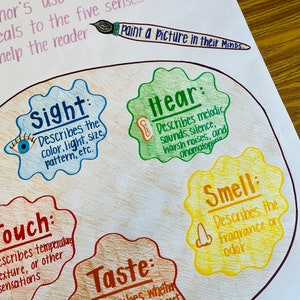 nor's use
eals to the five senses
help the reader
Paint a Picture in their Minds
Sight:
Describes the
color, light, size,
pattern, etc.
Hear:
Describes melodic
sounds, silence,
harsh noises, and
onomatopoeia
Smell:
Describes the
fragrance or
odor
Touch:
Describes temperature,
texture, or other
sensations
Taste: